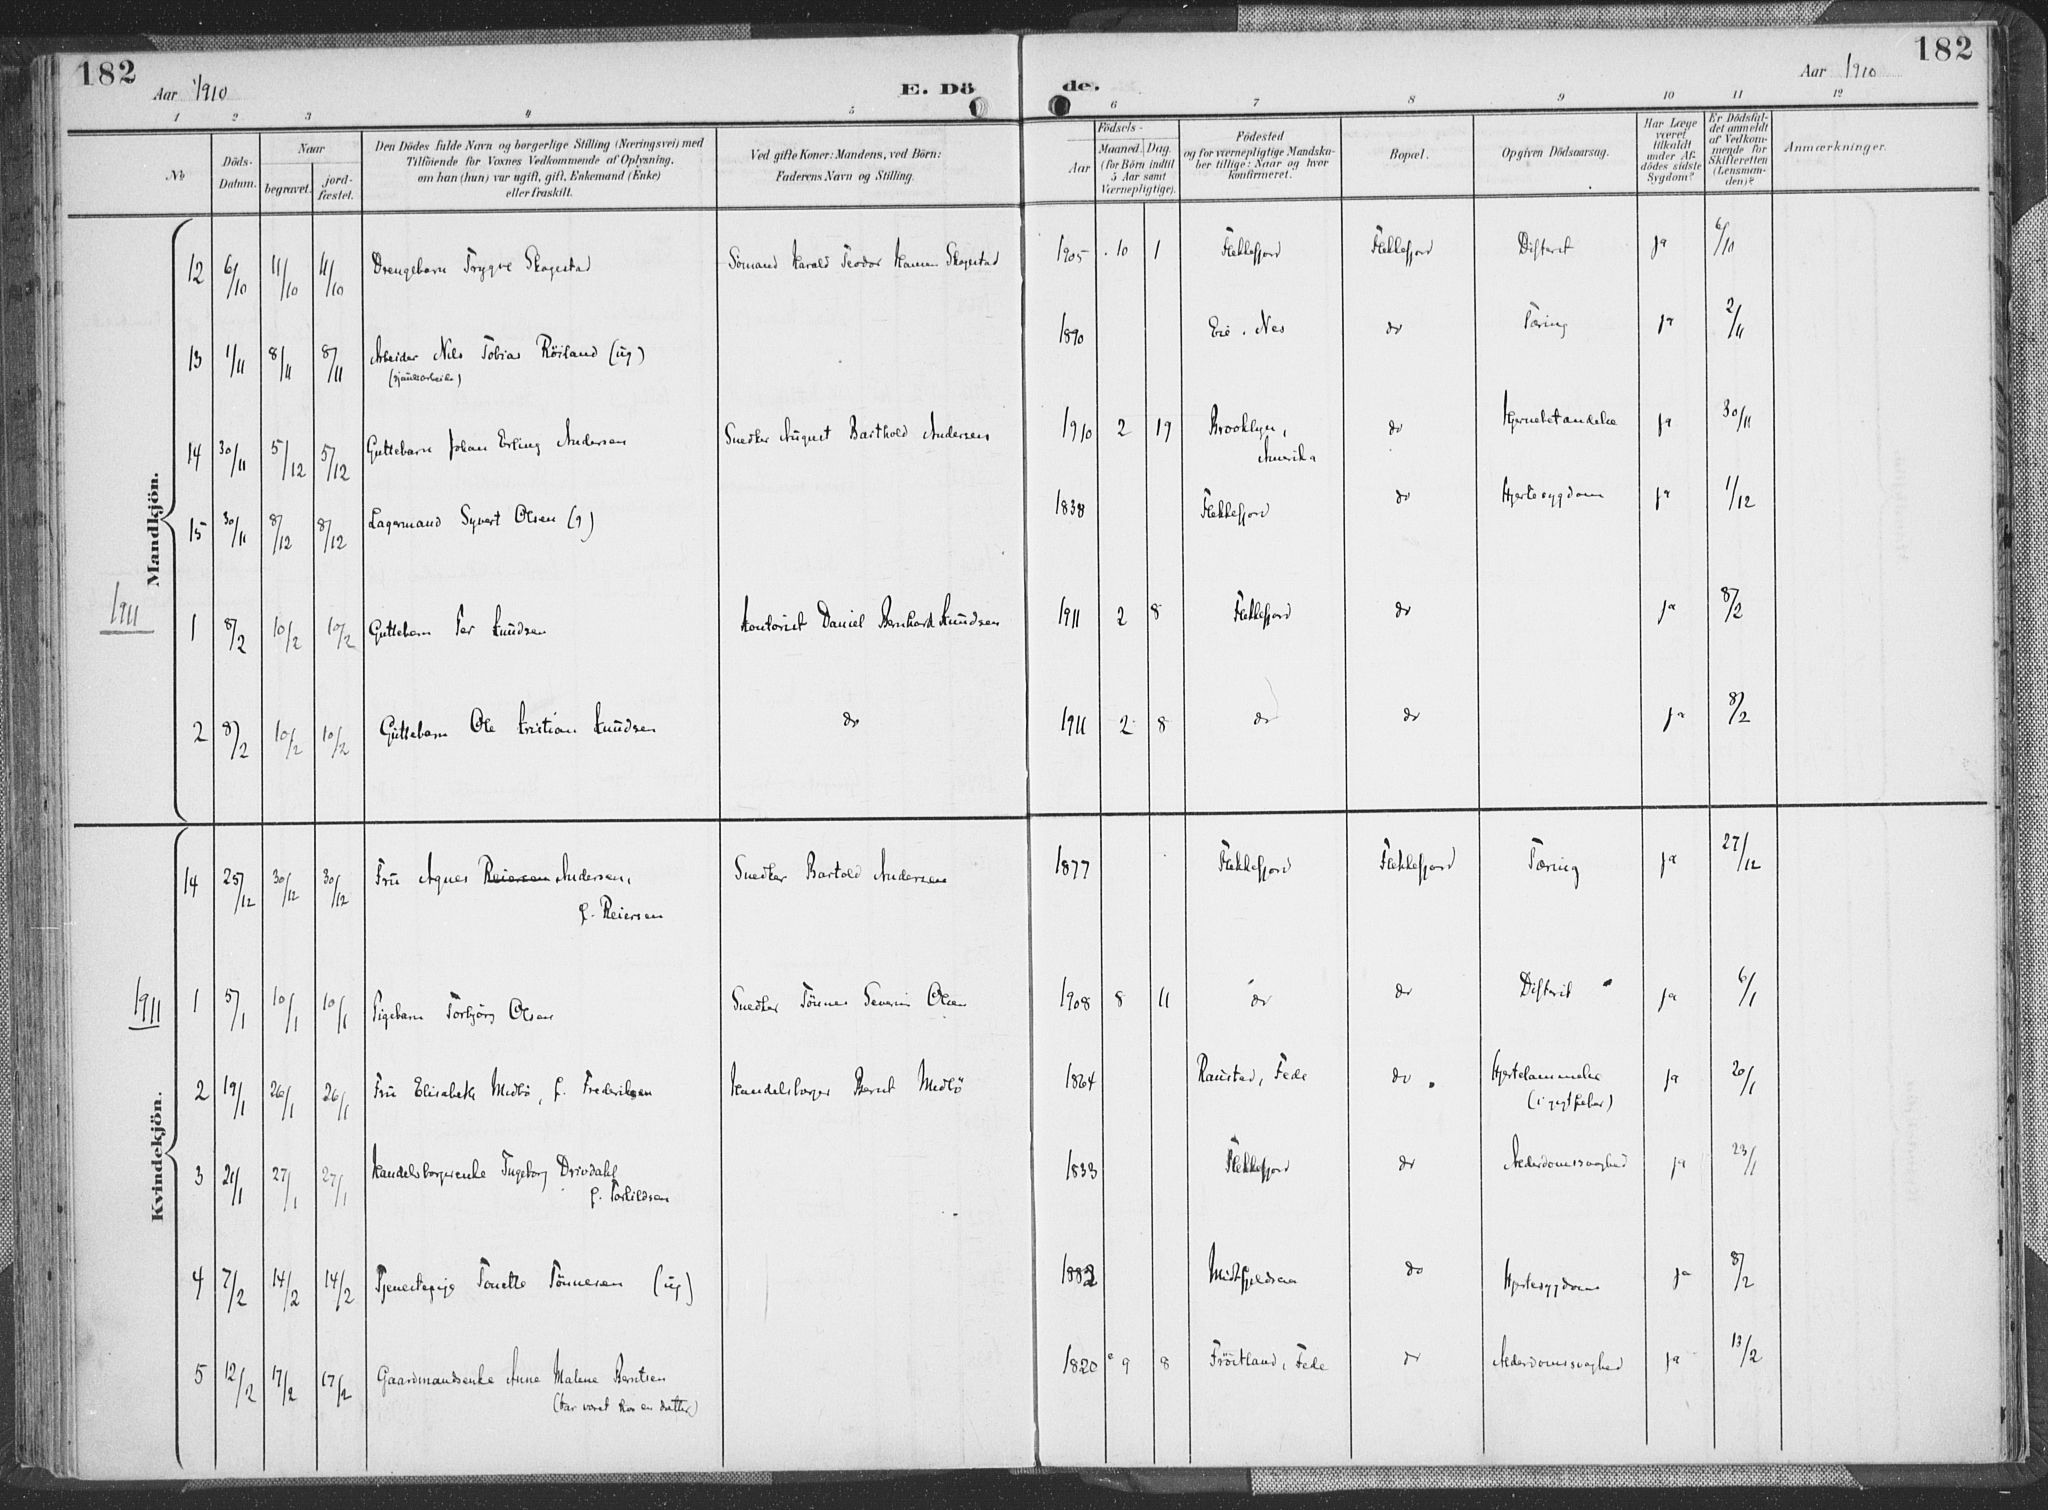 182
Aar 1910
E. Dö
de.
Aar 1910
182
1 2 3 4 5 6 7 8 9 10 11 12
No
Döds-
Datum.
Naar
begravet.
jord-
fæstet.
Den Dödes fulde Navn og borgerlige Stilling (Næringsvei) med
Tilföiende for Voxnes Vedkommende af Oplysning,
om han (hun) var ugift, gift, Enkemand (Enke)
eller fraskilt.
Ved gifte Koner: Mandens, ved Börn:
Faderens Navn og Stilling.
Födsels-
Aar
Maaned. Dag.
(for Börn indtil
5 Aar samt
Værnepligtige).
Födested
og for værnepligtige Mandska-
ber tillige: Naar og hvor
konfirmeret.
Bopæl.
Opgiven Dödsaarsag.
Har Læge
været
tilkaldt
under Af-
dödes sidste
Sygdom?
Er Dödsfal-
det anmeldt
af Vedkom-
mende for
Skifteretten
(Lensman-
den)?
Anmærkninger.
Mandkjön.
12 6/10 11/10 11/10 Drengebarn Trygve Skogestad Sömand Harald Teodor Hansen Skogestad 1905 10 1 Flekkefjord Flekkefjord Difterit ja 6/10
13 1/11 8/11 8/11 Arbeider Nils Tobias Röiland (ug) 1890 Eie. Nes do Tæring ja 2/11
(sjauerarbeider)
14 30/11 5/12 5/12 Guttebarn Johan Erling Andersen Snedker August Barthold Andersen 1910 2 19 Brooklyn, do Hjernebetændelse ja 30/11
Amerika
15 30/11 8/12 8/12 Lagermand Syvert Olsen (g) 1838 Flekkefjord do Hjertesygdom ja 1/12
1911
1 8/2 10/2 10/2 Guttebarn Per Knudsen Kontorist Daniel Bernhard Knudsen 1911 2 8 Flekkefjord do ja 8/2
2 8/2 10/2 10/2 Guttebarn Ole Kristian Knudsen do 1911 2 8 do do ja 8/2
Kvindekjön.
14 25/12 30/12 30/12 Fru Agnes Reiersen Andersen, Snedker Bartold Andersen 1877 Flekkefjord Flekkefjord Tæring ja 27/12
f. Reiersen
1911
1 5/1 10/1 10/1 Pigebarn Torbjörg Olsen Snedker Tönnes Severin Olsen 1908 8 11 do do Difterit ja 6/1
2 19/1 26/1 26/1 Fru Elisabeth Midbö, f. Frederiksen Handelsborger Bernt Midbö 1864 Raustad, Fede do Hjertelammelse ja 20/1
(i gigtfeber)
3 21/1 27/1 27/1 Handelsborgerenke Ingeborg Drivdahl 1833 Flekkefjord do Alderdomssvaghed ja 23/1
f. Torkildsen
4 7/2 14/2 14/2 Tjenestepige Tonette Tönnesen (ug) 1882 do Hjertesygdom ja 8/2
5 12/2 17/2 17/2 Gaardmandsenke Anne Malene Berntsen 1820 9 8 Fröitland, Fede do Alderdomssvaghed ja 13/2
(har været hos en datter)